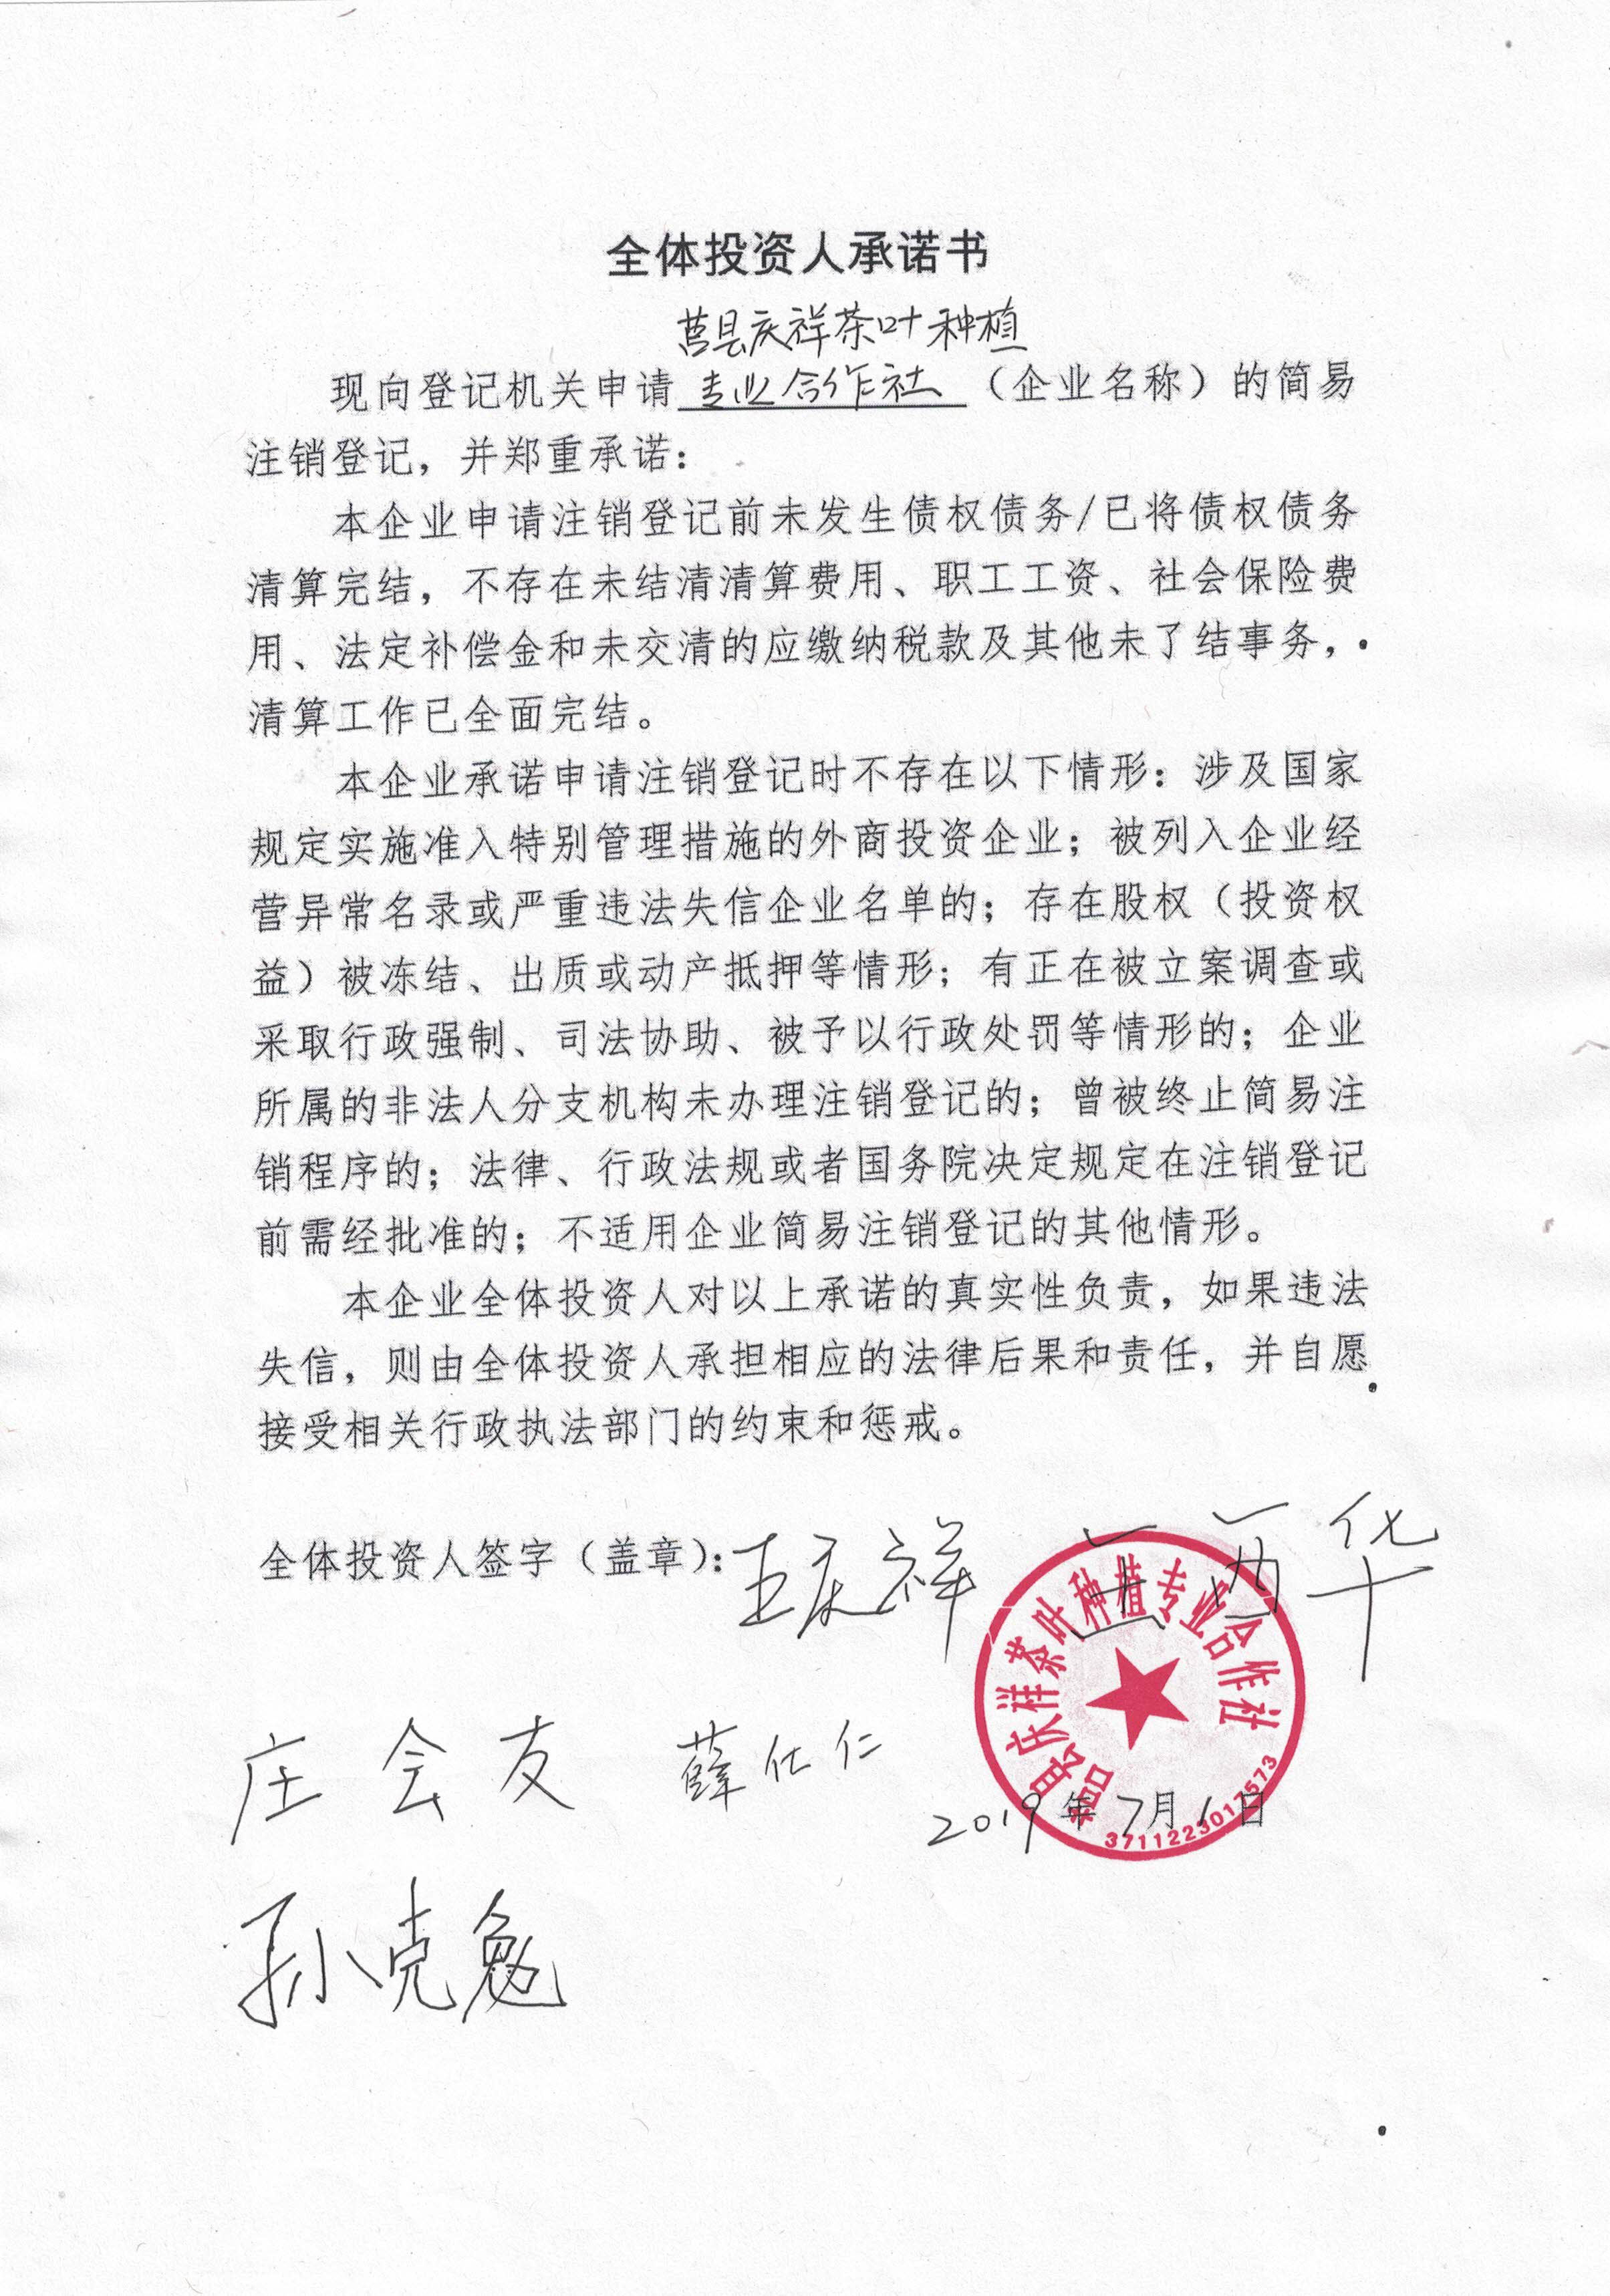 全体投资人承诺书
莒县庆祥茶叶种植
现向登记机关申请专业合作社（企业名称）的简易
注销登记，并郑重承诺：
本企业申请注销登记前未发生债权债务/已将债权债务
清算完结，不存在未结清清算费用、职工工资、社会保险费
用、法定补偿金和未交清的应缴纳税款及其他未了结事务，
清算工作已全面完结。
本企业承诺申请注销登记时不存在以下情形：涉及国家
规定实施准入特别管理措施的外商投资企业；被列入企业经
营异常名录或严重违法失信企业名单的；存在股权（投资权
益）被冻结、出质或动产抵押等情形；有正在被立案调查或
采取行政强制、司法协助、被予以行政处罚等情形的；企业
所属的非法人分支机构未办理注销登记的；曾被终止简易注
销程序的；法律、行政法规或者国务院决定规定在注销登记
前需经批准的；不适用企业简易注销登记的其他情形。
本企业全体投资人对以上承诺的真实性负责，如果违法
失信，则由全体投资人承担相应的法律后果和责任，并自愿
接受相关行政执法部门的约束和惩戒。
全体投资人签字（盖章）：王庆祥 华
莒县庆祥茶叶种植专业合作社
庄会友 薛仕仁
2019年7月1日
3711223017573
孙克勉